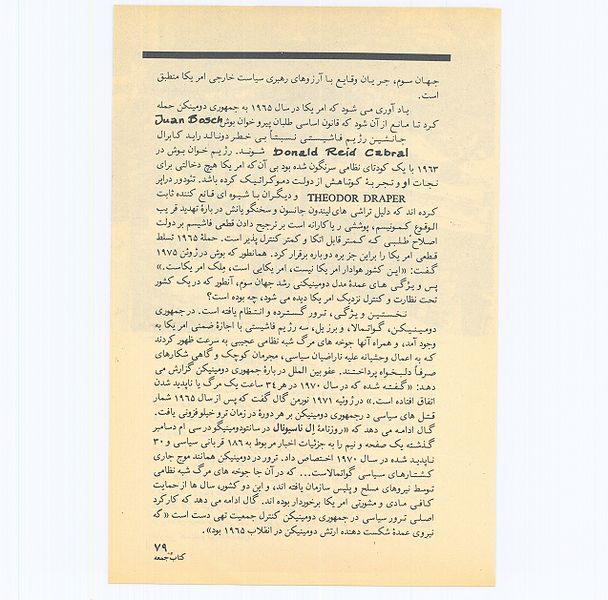 جهان سوم، جریان وقایع با آرزوهای رهبری سیاست خارجی امریکا منطبق
است.
یادآوری می شود که امریکا در سال ۱۹۶۵ به جمهوری دومینکن حمله
کرد تا مانع از آن شود که قانون اساسی طلبان پیرو خوان بوش Juan Bosch
جانشین رژیم فاشیستی نسبتاً بی خطر دونالد راید کابرال
Donald Reid Cabral شوند. رژیم خوان بوش در
۱۹۶۳ با یک کودتای نظامی سرنگون شده بود بی آن که امریکا هیچ دخالتی برای
نجات او و تجربهٔ کوتاهش از دولت دموکراتیک کرده باشد. تئودور دراپر
THEODOR DRAPER و دیگران با شیوه ای قانع کننده ثابت
کرده اند که دلیل تراشی های لیندون جانسون و سخنگویانش دربارهٔ تهدید قریب
الوقوع کمونیسم، پوششی ریاکارانه است بر ترجیح دادن قطعی فاشیسم بر دولت
اصلاح طلبی که کمتر قابل اتکا و کمتر کنترل پذیر است. حملهٔ ۱۹۶۵ تسلط
قطعی امریکا را بر این جزیره دوباره برقرار کرد. همانطور که بوش در ژوئن ۱۹۷۵
گفت: «این کشور هوادار امریکا نیست، امریکایی است، مِلک امریکاست.»
پس ویژگی های عمدهٔ مدل دومینیکنی رشد جهان سوم، آنطور که در یک کشور
تحت نظارت و کنترل نزدیک امریکا دیده می شود، چه بوده است؟
نخستین ویژگی، ترور گسترده و انتظام یافته است. در جمهوری
دومینیکن، گواتمالا، و برزیل، سه رژیم فاشیستی با اجازهٔ ضمنی امریکا به
وجود آمد، و همراه آنها جوخه های مرگ شبه نظامی عجیبی به سرعت ظهور کردند
که به اعمال وحشیانه علیه ناراضیان سیاسی، مجرمان کوچک و گاهی شکارهای
صرفاً دلبخواه پرداختند. عفو بین الملل دربارهٔ جمهوری دومینیکن گزارش می
دهد: «گفته شده که در سال ۱۹۷۰ در هر ۳۴ ساعت یک مرگ یا ناپدید شدن
اتفاق افتاده است.» در ژوئیه ۱۹۷۱ نورمن گال گفت که پس از سال ۱۹۶۵ شمار
قتل های سیاسی در جمهوری دومینیکن بر هر دورهٔ در زمان تروخیلو فزونی یافت.
گال ادامه می دهد که «روزنامهٔ اِل ناسیونال در سانتودومینیگو در سی ام دسامبر
گذشته یک صفحه و نیم را به جزئیات اخبار مربوط به ۱۸۶ قربانی سیاسی و ۳۰
ناپدید شده در سال ۱۹۷۰ اختصاص داد. ترور در دومینیکن همانند موج جاری
کشتارهای سیاسی گواتمالاست... که در آن جا جوخه های مرگ شبه نظامی
توسط نیروهای مسلح و پلیس سازمان یافته اند، و این دو کشور، سال ها از حمایت
کافی مادی و مشورتی امریکا برخوردار بوده اند. گال ادامه می دهد که کارکرد
اصلی ترور سیاسی در جمهوری دومینیکن کنترل جمعیت تهی دست است «که
نیروی عمدهٔ شکست دهنده ارتش دومینیکن در انقلاب ۱۹۶۵ بود».
۷۹
کتاب جمعه